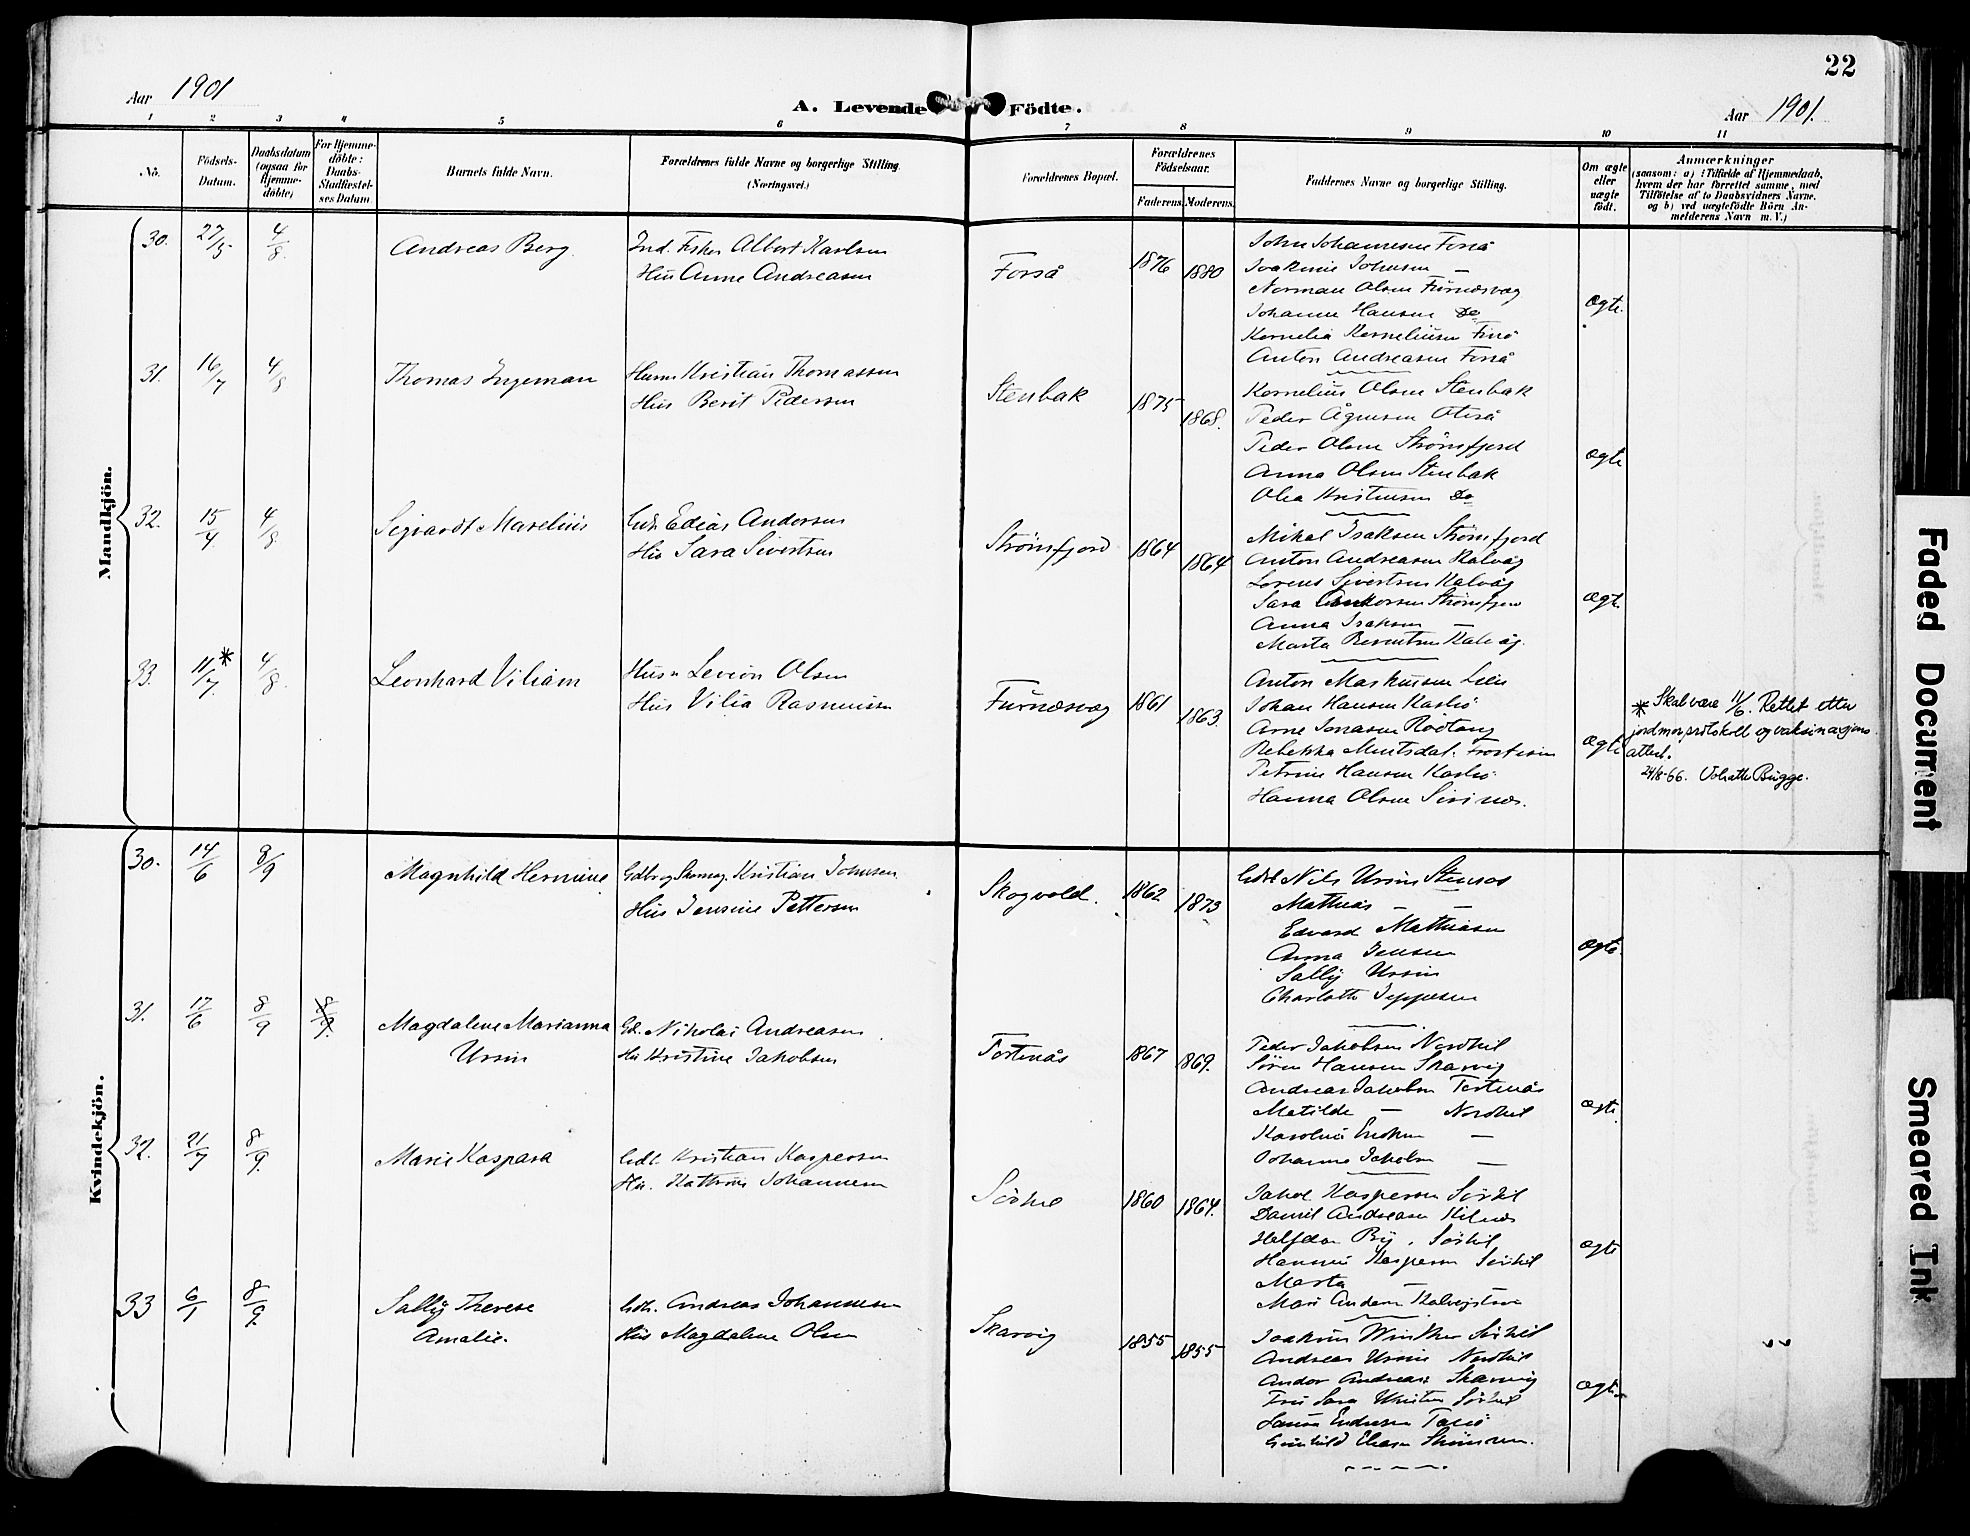 22
Aar 1901
A. Levende Födte.
Aar 1901.
1 2 3 4 5 6 7 8 9 10 11
No.
Födsels-
Datum.
Daabsdatum
(ogsaa for
Hjemme-
döbte)
For Hjemme-
döbte:
Daabs-
Stadfæstel-
ses Datum.
Barnets fulde Navn.
Forældrenes fulde Navne og borgerlige Stilling.
(Næringsvei.)
Forældrenes Bopæl.
Forældrenes
Födselsaar.
Faderens. Moderens.
Faddernes Navne og borgerlige Stilling.
Om ægte
eller
uægte
födt.
Anmærkninger
(saasom: a) i Tilfælde af Hjemmedaab,
hvem der har forrettet samme, med
Tilföielse af to Daabsvidners Navne,
og b) ved uægtefödte Börn An-
melderens Navn m. V.)
Mandkjön.
30. 27/5 4/8. Andreas Berg.
Ind. Fisker Albert Karlsen
Hu Anne Andreasen
Forså 1876 1880
John Johannesen Forså
Joakime Johnsen —
Norman Olsen Furnesvåg
Johanne Hansen Do
Kornelia Korneliusen
Anton Andreasen Forså
Ægte.
31. 16/7 4/8 Thomas Ingeman
Husm Kristian Thomassen
Hus Berit Pedersen
Stenbak 1875 1868.
Kornelius Olsen Stenbak
Peder Ågesen
Peder Olsen Strømsfjord
Anna Olsen Stenbak
Olea Kristensen Do
Ægte
32. 15/4 4/8 Sigvardt Marelius
Gdb. Edias Andersen
Hus Sara Sivertsen
Strømsfjord 1864 1864
Mikal Isaksen Strømsfjord
Anton Andreasen Kalvåg
Lorens Sivertsen Kalvåg
Sara Andersen Strømsfjord
Anna Isaksen —
Marta Berntsen Kalvåg.
Ægte.
33. 11/7* 4/8. Leonhard Viliam
Husm Levion Olsen
Hus Vilia Rasmussen
Furnesvåg 1861 1863.
Anton Markussen
Johan Hansen
Arne Jonasen Rødtang
Rebekka
Petrine Hansen
Hanna Olsen
Ægte
* Skal være 11/6. Rettet etter
jordmorprotokoll og vaksinasjons-
attest.
24/8-66. Bugge.
Kvindekjön.
30. 14/6 8/9 Magnhild Hermine
Gdb og Skomag. Kristian Johnsen
Hus Jensine Pettersen
Skogvold. 1862 1873
Gdbr Nils Ursin Stensås
Mathias — —
Edvard Mathiasen
Anna Jensen
Sally Ursin
Charlotte Jeppesen
Ægte.
31. 17/6 8/9 8/9. Magdalene Marianna
Ursin
Gd. Nikolai Andreasen
Hu Kristine Jakobsen
Tortenås 1867 1869.
Peder Jakobsen Nordkil
Sören Hansen Skarvig
Andreas Jakobsen Tortenås
Matilde — Nordkil
Karolus —
Johanna Jakobsen —
Ægte.
32. 21/7 8/9. Marie Kaspara
Gdb. Kristian Kaspersen
Hu. Kathrine Johannesen
Sörkil 1860 1864.
Jakob Kaspersen Sörkil
Daniel Andreasen Kilnes
Halfdan By. Sörkil
Hanna Kaspersen Sörkil
Marta — —
Mari Andersen
Ægte
33 6/1 8/9. Sally Therese
Amalie.
Gdb. Andreas Johannesen
Hus Magdalene Olsen
Skarvig 1855 1855
Joakim Winther Sörkil
Andreas Ursin Nordkil
Andor Andreas. Skarvig
Fru Sara Winther Sörkil
Laura Endresen
Gunhild Eliasen
Ægte
Faded Document
Smeared Ink